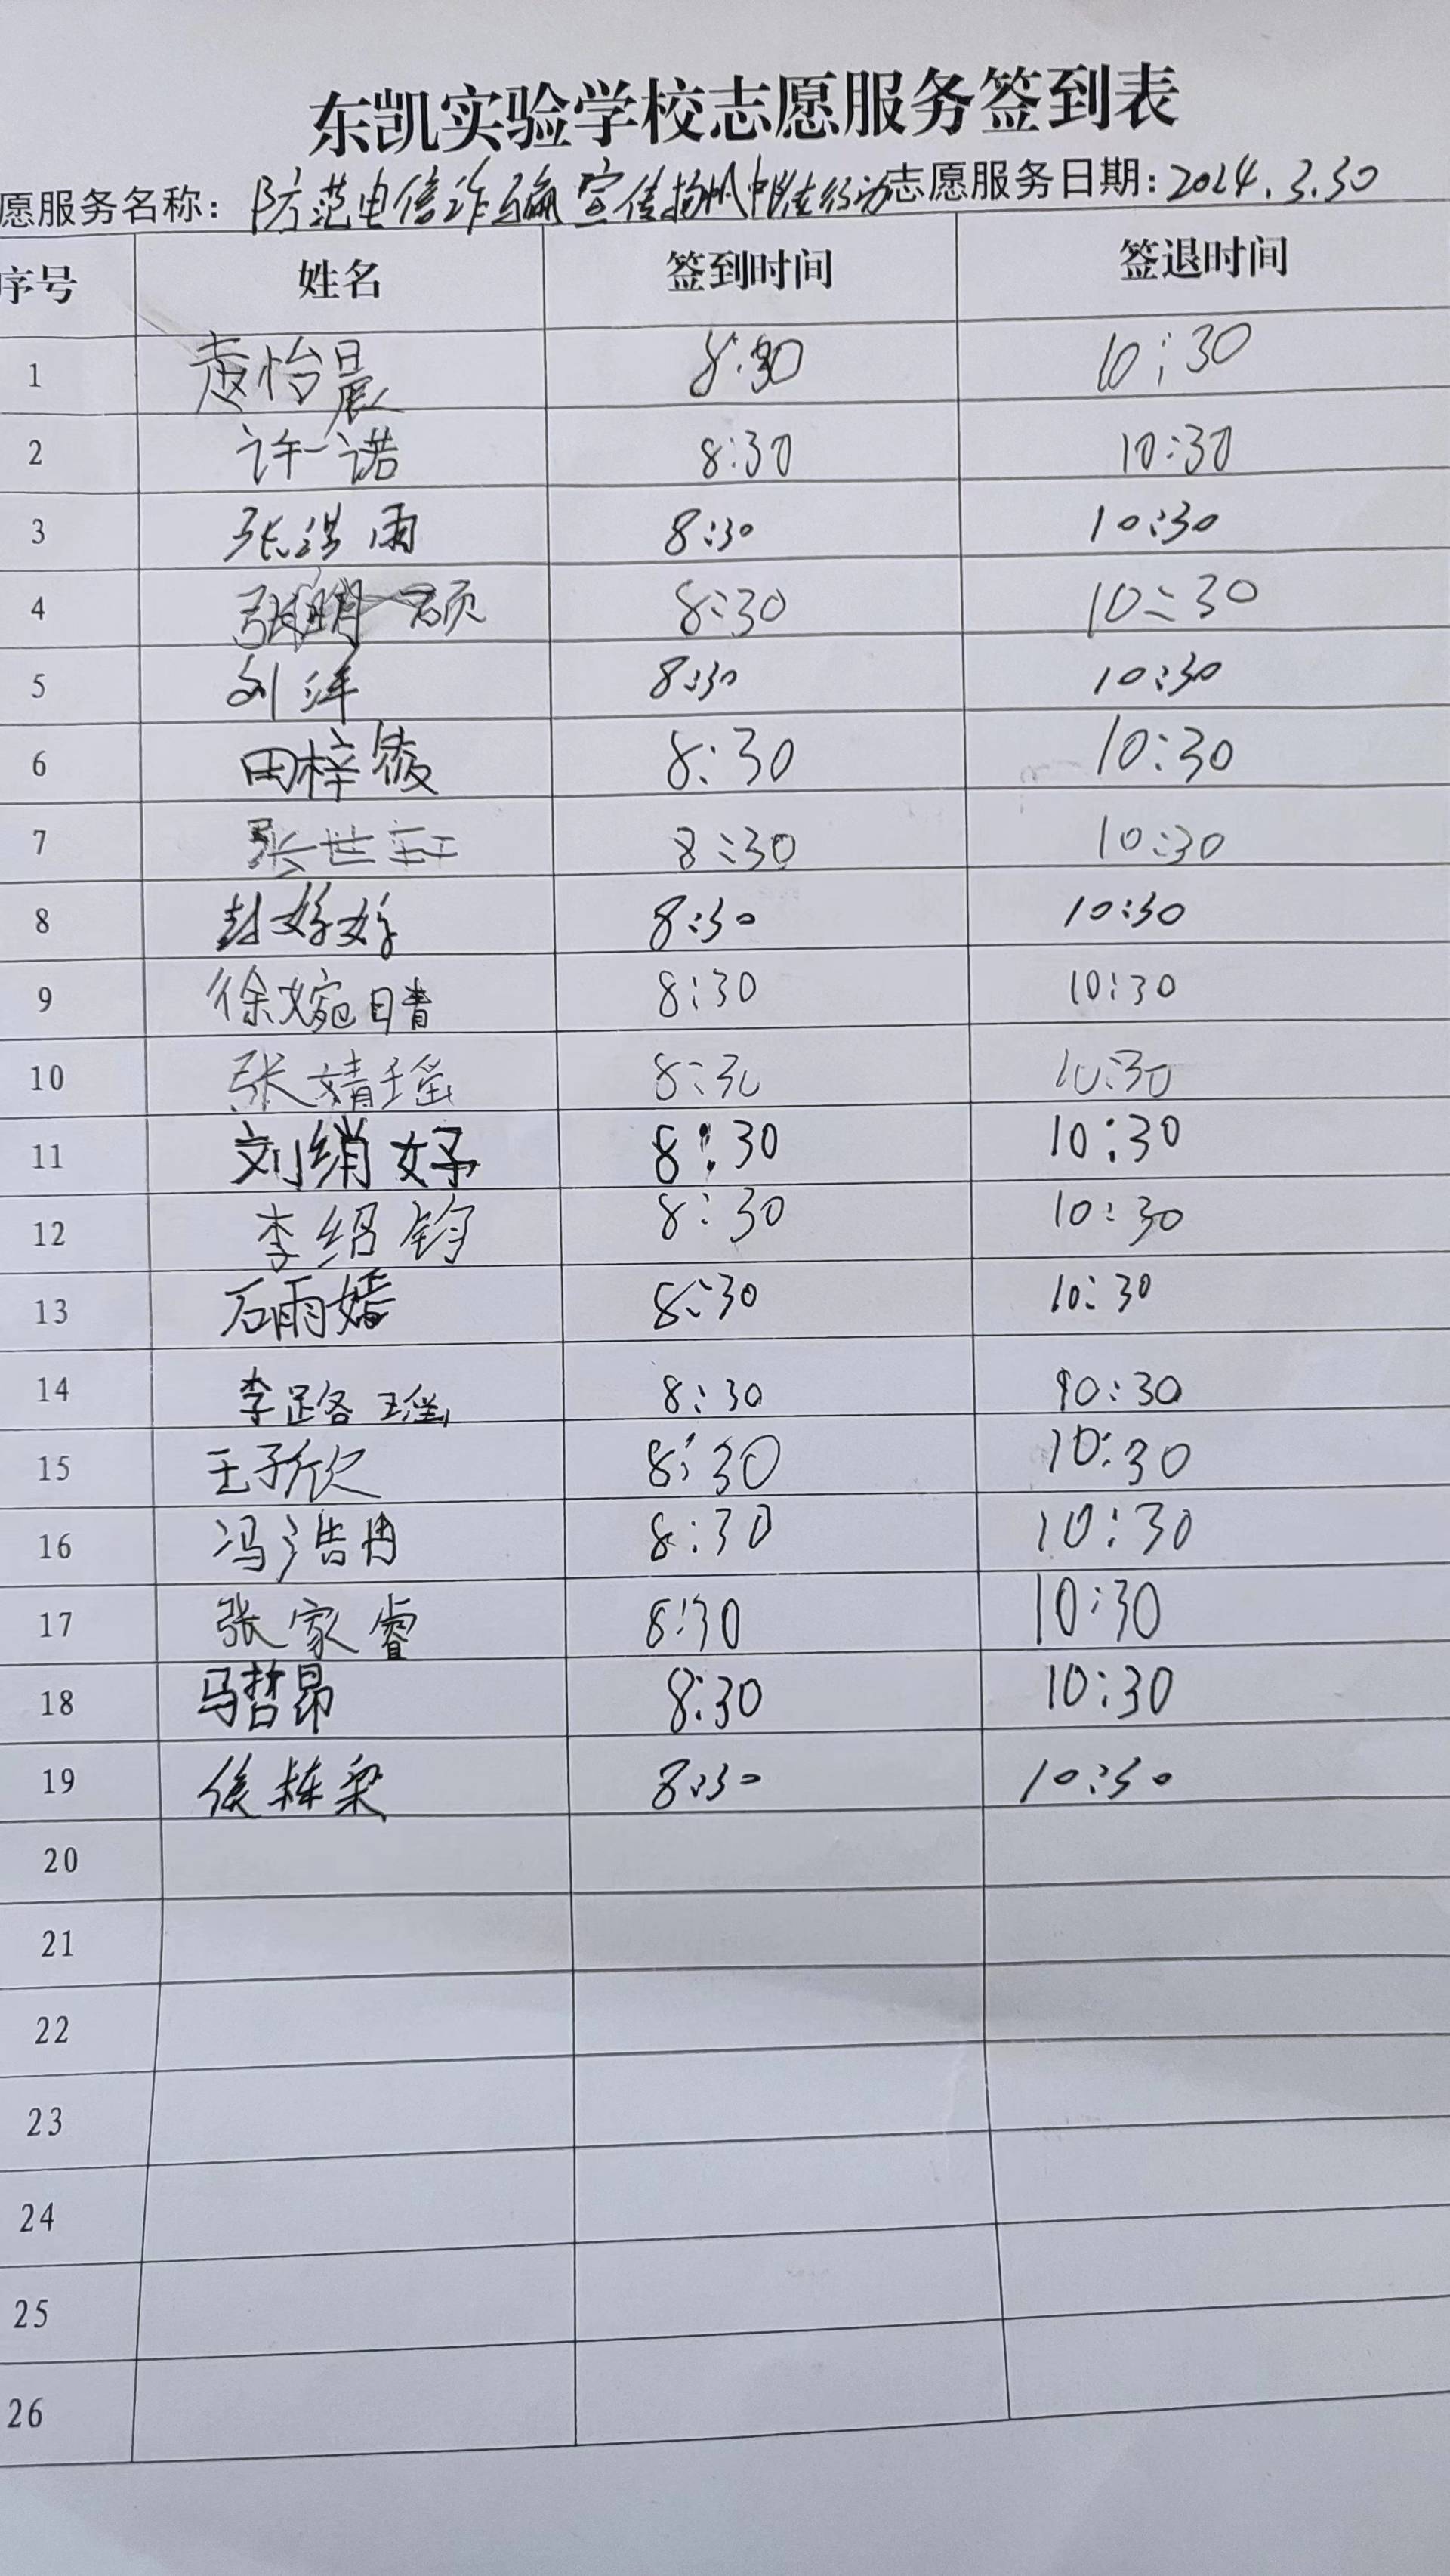 东凯实验学校志愿服务签到表
愿服务名称：防范电信诈骗宣传扬帆中队在行动 志愿服务日期：2024.3.30
序号 姓名 签到时间 签退时间
1 袁怡晨 8:30 10:30
2 许一诺 8:30 10:30
3 张洪雨 8:30 10:30
4 张明硕 8:30 10:30
5 刘洋 8:30 10:30
6 田梓筱 8:30 10:30
7 张世轩 8:30 10:30
8 封好好 8:30 10:30
9 徐婉晴 8:30 10:30
10 张婧瑶 8:30 10:30
11 刘绡妤 8:30 10:30
12 李绍钧 8:30 10:30
13 石雨嫣 8:30 10:30
14 李路瑶 8:30 10:30
15 王子欣 8:30 10:30
16 冯浩冉 8:30 10:30
17 张家睿 8:30 10:30
18 马哲昂 8:30 10:30
19 侯栋梁 8:30 10:30
20
21
22
23
24
25
26